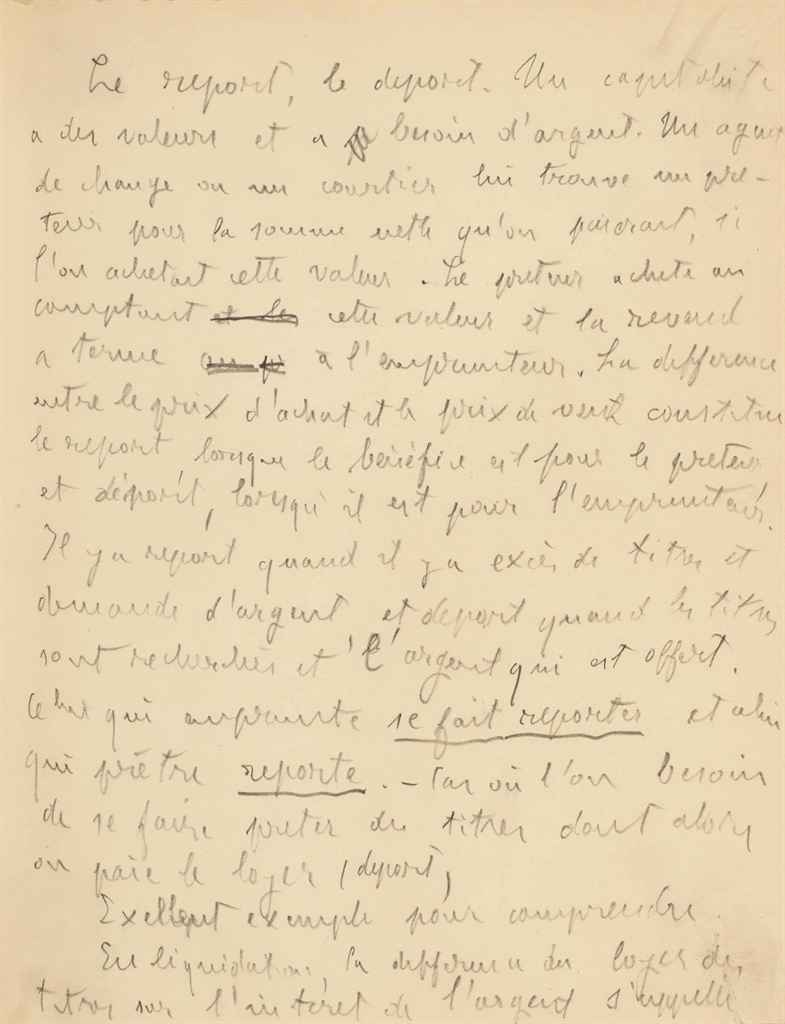 Le report, le deport. Un capitaliste
a des valeurs et a besoin d'argent. Un agent
de change ou un courtier lui trouve un prê-
teur pour la somme nette qu'on paierait, si
l'on achetait cette valeur. Le prêteur achète au
comptant et le cette valeur et la revend
a terme au p à l'emprunteur. La difference
entre le prix d'achat et le prix de vente constitue
le report lorsque le bénéfice est pour le preteur
et déport, lorsqu'il est pour l'emprunteur.
Il y a report quand il y a excès de titres et
demande d'argent et deport quand les titres
sont recherchés et l'argent qui est offert.
Celui qui emprunte se fait reporter et celui
qui prête reporte. – Cas où l'on besoin
de se faire preter des titres dont alors
on paie le loyer (deport)
Exellent exemple pour comprendre.
En liquidation, la difference du loyer des
titres sur l'intéret de l'argent s'appelle